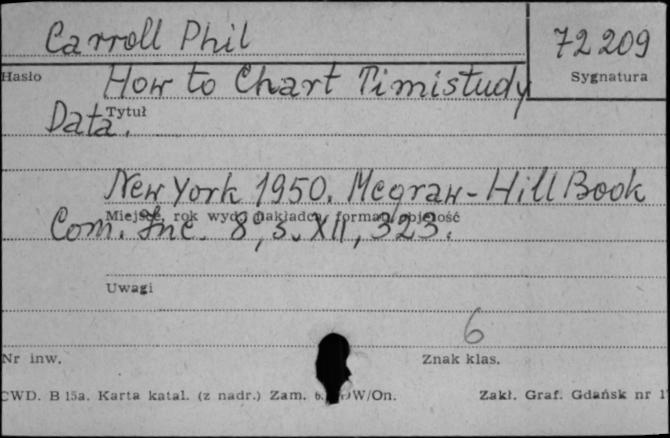 Carroll Phil
72 209
Hasło
Sygnatura
How to Chart Timistudy
Tytuł
Data.
New York 1950. Mcgraw-Hill Book
Miejsce, rok wyd., nakładca, format, objętość
Com. Inc. 8°, s. XII, 323.
Uwagi
6
Nr inw.
Znak klas.
CWD. B 15a. Karta katal. (z nadr.) Zam. W/On.
Zakł. Graf. Gdańsk nr